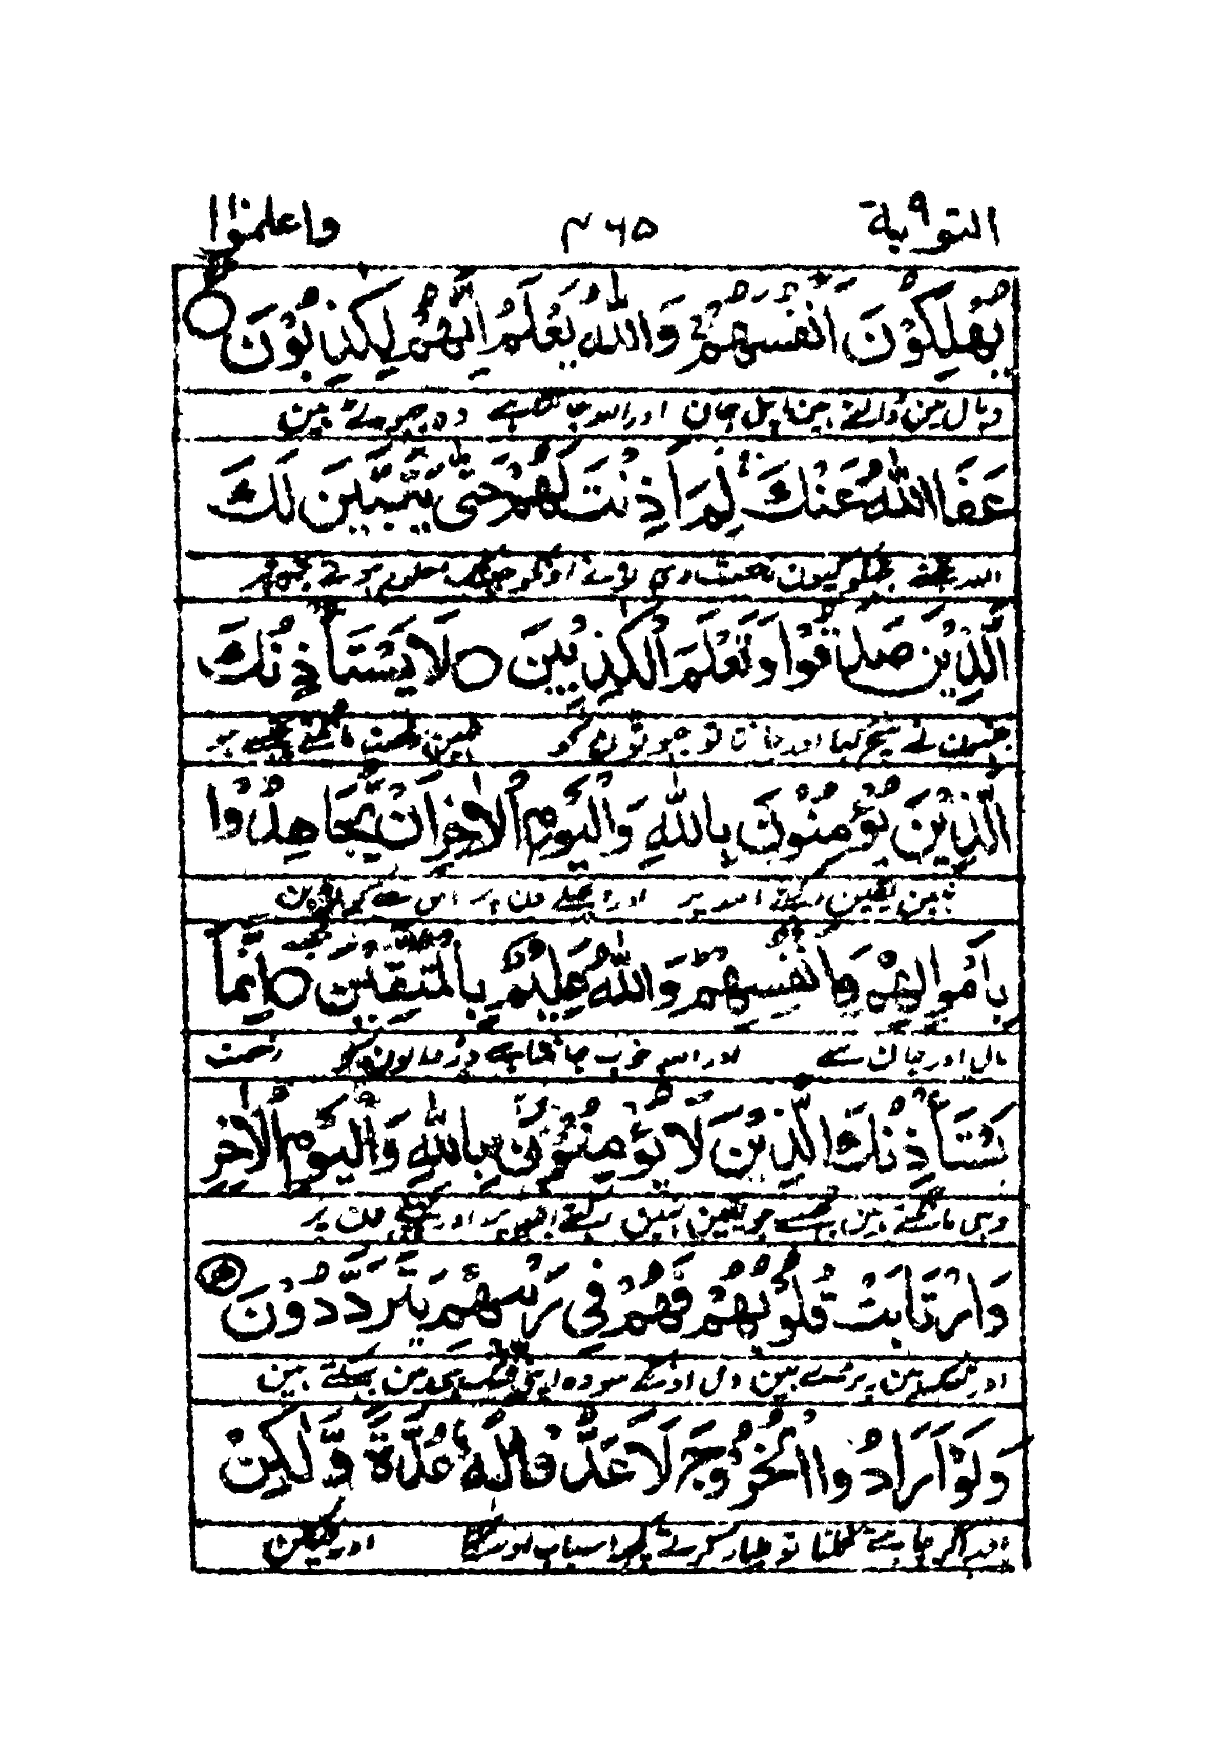 التوبة ٩ ٤٦٥ واعلموا
يُهْلِكُوْنَ اَنْفُسَهُمْ وَاللّٰهُ يَعْلَمُ اِنَّهُمْ لَكٰذِبُوْنَ
وبال مین ڈالتے ہین اپنی جان اور اللہ جانتا ہے وہ جھوٹے ہین
عَفَا اللّٰهُ عَنْكَ لِمَ اَذِنْتَ لَهُمْ حَتّٰى يَتَبَيَّنَ لَكَ
اللہ بخشے تجکو کیون رخصت دی تونے اونکو جب تک معلوم ہوتے تجھپر
الَّذِيْنَ صَدَقُوْا وَتَعْلَمَ الْكٰذِبِيْنَ ○ لَا يَسْتَاْذِنُكَ
جنہون نے سچ کہا اور جانتا تو جھوٹون کو نہین رخصت مانگتے تجھسے جو
الَّذِيْنَ يُؤْمِنُوْنَ بِاللّٰهِ وَالْيَوْمِ الْاٰخِرِ اَنْ يُّجَاهِدُوْا
ہین یقین رکھتے اللہ پر اور پچھلے دن پر اس سے کہ لڑین
بِاَمْوَالِهِمْ وَاَنْفُسِهِمْ وَاللّٰهُ عَلِيْمٌ بِالْمُتَّقِيْنَ ○ اِنَّمَا
مال اور جان سے اور اللہ خوب جانتا ہے ڈر والون کو رخصت
يَسْتَاْذِنُكَ الَّذِيْنَ لَا يُؤْمِنُوْنَ بِاللّٰهِ وَالْيَوْمِ الْاٰخِرِ
وہی مانگتے ہین تجھسے جو یقین نہین رکھتے اللہ پر اور پچھلے دن پر
وَارْتَابَتْ قُلُوْبُهُمْ فَهُمْ فِيْ رَيْبِهِمْ يَتَرَدَّدُوْنَ
اور شک مین پڑے ہین دل اونکے سو وہ اپنی شک ہی مین بھٹکتے ہین
وَلَوْ اَرَادُوا الْخُرُوْجَ لَاَعَدُّوْا لَهٗ عُدَّةً وَّلٰكِنْ
اور اگر چاہتے نکلنا تو طیار کرتے کچھ اسباب اور لیکن